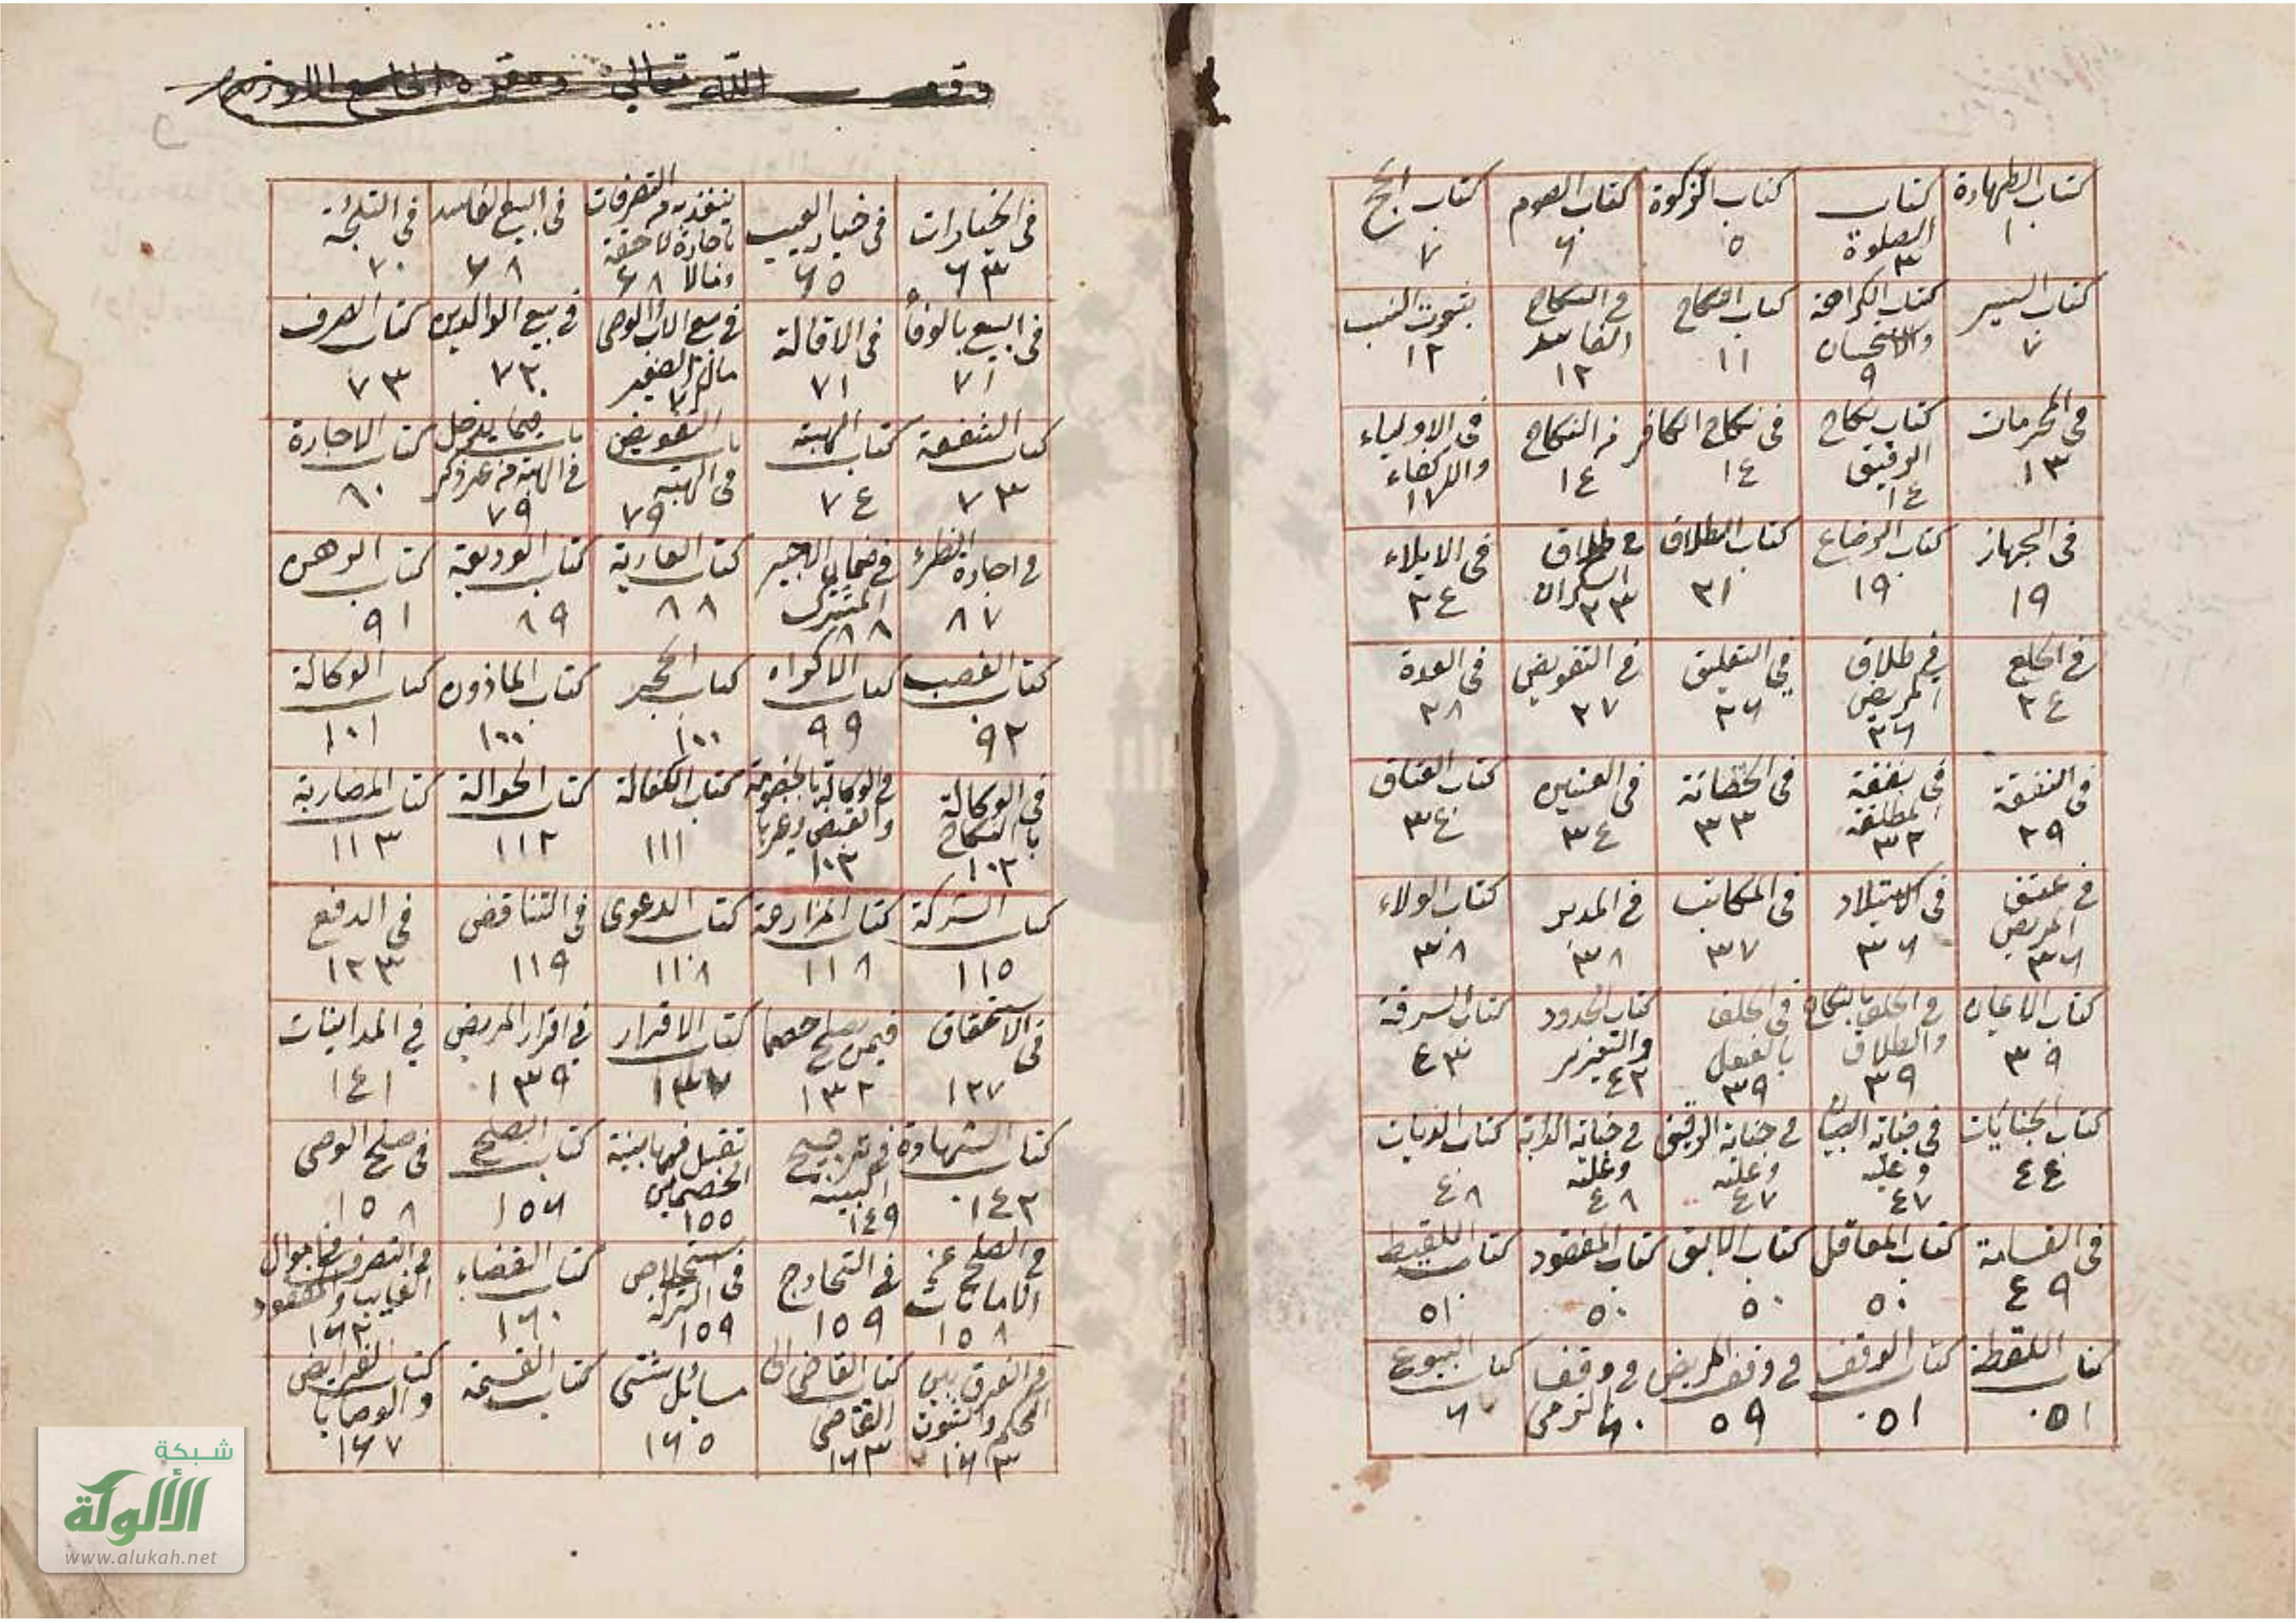 كتاب الطهارة ١
كتاب الصلوة ٣
كتاب الزكوة ٥
كتاب الصوم ٦
كتاب الحج ٧
كتاب السير ٧
كتاب الكراهة والاستحسان ٩
كتاب النكاح ١١
في النكاح الفاسد ١٢
ثبوت النسب ١٢
في المحرمات ١٣
كتاب نكاح الرقيق ١٤
في نكاح الكافر ١٤
في النكاح ١٤
في الاولياء والاكفاء ١٧
في الجهاز ١٩
كتاب الرضاع ١٩
كتاب الطلاق ٢١
في طلاق السكران ٢٣
في الايلاء ٢٤
في الخلع ٢٤
في طلاق المريض ٢٦
في التعليق ٢٦
في التفويض ٢٧
في العدة ٢٨
في النفقة ٢٩
في نفقة المطلقة ٣٢
في الحضانة ٣٣
في العنين ٣٤
كتاب العتاق ٣٤
في عتق المريض ٣٦
في الاستيلاد ٣٦
في المكاتب ٣٧
في المدبر ٣٨
كتاب الولاء ٣٨
كتاب الايمان ٣٩
في الحلف بالنكاح والطلاق ٣٩
في الحلف بالفعل ٣٩
كتاب الحدود والتعزير ٤٢
كتاب السرقة ٤٣
كتاب الجنايات ٤٤
في جناية الصبيان وعليه ٤٧
في جناية الرقيق وعليه ٤٧
في جناية الدابة وعليه ٤٨
كتاب الديات ٤٨
في القسامة ٤٩
كتاب المعاقل ٥٠
كتاب الابق ٥٠
كتاب المفقود ٥٠
كتاب اللقيط ٥١
كتاب اللقطة ٥١
كتاب الوقف ٥١
في وقف المريض ٥٩
في وقف الذمي ٦٠
كتاب البيوع ٦٠
وقف الله تعالى
في الخيارات ٦٣
في خيار العيب ٦٥
التصرفات باجازة لاحقة ومالا ٦٨
في البيع الفاسد ٦٨
في التلجئة ٧٠
في البيع بالوفا ٧١
في الاقالة ٧١
في بيع الاب والوصي مال الصغير
في بيع الوالدين ٧٣
كتاب الصرف ٧٣
كتاب الشفعة ٧٣
كتاب الهبة ٧٤
باب التعويض في الهبة ٧٩
باب فيما يدخل في الهبة من غير ذكر ٧٩
كتاب الاجارة ٨٠
في اجارة الظئر ٨٧
في ضمان الاجير المشترك ٨٨
كتاب العارية ٨٨
كتاب الوديعة ٨٩
كتاب الرهن ٩١
كتاب الغصب ٩٢
كتاب الاكراه ٩٩
كتاب الحجر ١٠٠
كتاب الماذون ١٠٠
كتاب الوكالة ١٠١
في الوكالة بالنكاح ١٠٢
في الوكالة بالخصومة والقبض وغيرها ١٠٣
كتاب الكفالة ١١١
كتاب الحوالة ١١٢
كتاب المضاربة ١١٣
كتاب الشركة ١١٥
كتاب المزارعة ١١٨
كتاب الدعوى ١١٨
في التناقض ١١٩
في الدفع ١٢٣
في الاستحقاق ١٢٧
فيمن يصلح خصما ١٣٢
كتاب الاقرار ١٣٧
في اقرار المريض ١٣٩
في المداينات ١٤١
كتاب الشهادة ١٤٢
في ترجيح البينة ١٤٩
تقبل فيها بينة الخصمين ١٥٥
كتاب الصلح ١٥٦
في صلح الوصي ١٥٨
في الصلح عن الامانات ١٥٨
في التخارج ١٥٩
في استخلاص التركة ١٥٩
كتاب القضاء ١٦٠
في التصرف في اموال الغايب والمفقود ١٦٢
في الفرق بين الحكم والثبوت ١٦٣
كتاب القاضي الى القاضي ١٦٣
مسائل شتى ١٦٥
كتاب القسمة
كتاب الفرايض والوصايا ١٦٧
شبكة
الألوكة
www.alukah.net